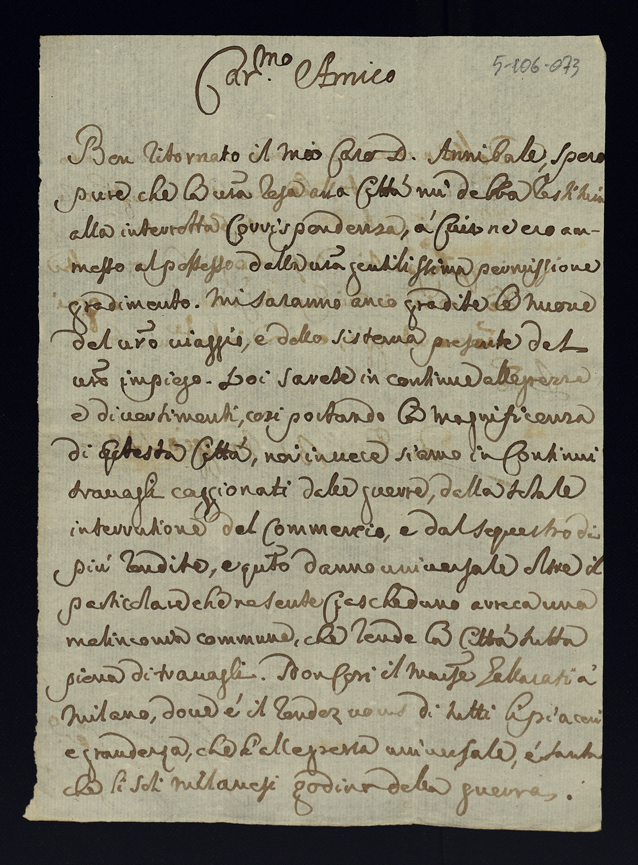 5-106-073
Car.mo Amico
Ben ritornato il mio Caro D. Annibale, spero
pure che la vra resa alla Città mi debba
alla interrotta Corrispondenza, á Cui ne ero am-
messo al possesso dalla vra gentilissima permissione
gradimento. Mi saranno anco gradite le nuove
del vro viaggio, e dello sistema presente del
vro impiego. Voi sarete in continue allegrezze
e divertimenti, cosi portando la magnificenza
di cotesta Città, noi invece siamo in Continui
travagli caggionati dalle guerre, della totale
interrutione del Commercio, e dal sequestro di
più rendite, e qsto danno universale oltre il
particolare che ne sente Ciascheduno arreca una
melinconia commune, che rende la Città tutta
piena di travagli. Non Cosi il Marse á
Milano, dove é il rendez vous di tutti li piaceri
e grandezza, che l'allegrezza universale, é
che li soli Milanesi godino della guerra.